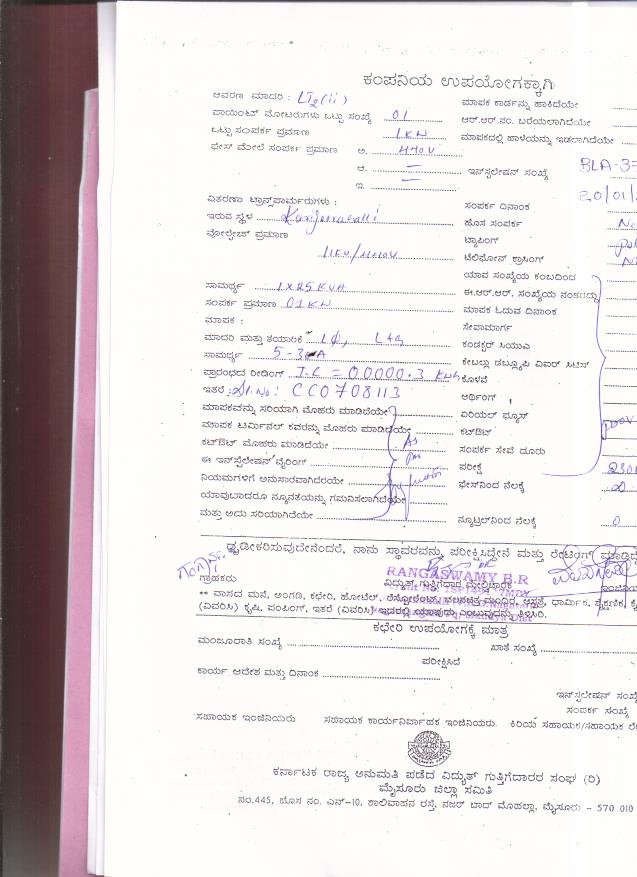 ಕಂಪನಿಯ ಉಪಯೋಗಕ್ಕಾಗಿ
ಆವರಣ ಮಾದರಿ : LT2(ii) ಮಾಪಕ ಕಾರ್ಡನ್ನು ಹಾಕಿದೆಯೇ
ಪಾಯಿಂಟ್ ಮೋಟರುಗಳು ಒಟ್ಟು ಸಂಖ್ಯೆ 01 ಆರ್.ಆರ್.ನಂ. ಬರೆಯಲಾಗಿದೆಯೇ
ಒಟ್ಟು ಸಂಪರ್ಕ ಪ್ರಮಾಣ 1KW ಮಾಪಕದಲ್ಲಿ ಹಾಳೆಯನ್ನು ಇಡಲಾಗಿದೆಯೇ
ಫೇಸ್ ಮೇಲೆ ಸಂಪರ್ಕ ಪ್ರಮಾಣ ಅ.
ಆ. ಇನ್ಸ್ಟಲೇಷನ್ ಸಂಖ್ಯೆ BLA-3
ಇ. 20/01/
ವಿತರಣಾ ಟ್ರಾನ್ಸ್‌ಫಾರ್ಮರುಗಳು : ಸಂಪರ್ಕ ದಿನಾಂಕ
ಇರುವ ಸ್ಥಳ ಹೊಸ ಸಂಪರ್ಕ
ವೋಲ್ಟೇಜ್ ಪ್ರಮಾಣ ಟ್ಯಾಪಿಂಗ್
11KV/ ಟೆಲಿಫೋನ್ ಕ್ರಾಸಿಂಗ್
ಯಾವ ಸಂಖ್ಯೆಯ ಕಂಬದಿಂದ
ಸಾಮರ್ಥ್ಯ 1X25 KVA ಈ.ಆರ್.ಆರ್. ಸಂಖ್ಯೆಯ ನಂತರದ್ದು
ಸಂಪರ್ಕ ಪ್ರಮಾಣ 01KW ಮಾಪಕ ಓದುವ ದಿನಾಂಕ
ಮಾಪಕ : ಸೇವಾಮಾರ್ಗ
ಮಾದರಿ ಮತ್ತು ತಯಾರಿಕೆ 1Φ, L&G ಕಂಡಕ್ಟರ್ ಸಿಯುಎ
ಸಾಮರ್ಥ್ಯ 5-30A ಕೇಬಲ್ಲು ಡಬ್ಲ್ಯೂಪಿ ವಿಐರ್ ಸಿಟಿಸ್
ಪ್ರಾರಂಭದ ರೀಡಿಂಗ್ I.R = 00000.3 KWh ಕೊಳವೆ
ಇತರೆ : Sl.No: CC0708113 ಅರ್ಥಿಂಗ್
ಮಾಪಕವನ್ನು ಸರಿಯಾಗಿ ಮೊಹರು ಮಾಡಿದೆಯೇ ಏರಿಯಲ್ ಫ್ಯೂಸ್
ಮಾಪಕ ಟರ್ಮಿನಲ್ ಕವರನ್ನು ಮೊಹರು ಮಾಡಿದೆಯೇ ಕಟ್‌ಔಟ್
ಕಟ್‌ಔಟ್ ಮೊಹರು ಮಾಡಿದೆಯೇ ಸಂಪರ್ಕ ಸೇವೆ ದೂರು
ಈ ಇನ್ಸ್ಟಲೇಷನ್ ವೈರಿಂಗ್ ಪರೀಕ್ಷೆ
ನಿಯಮಗಳಿಗೆ ಅನುಸಾರವಾಗಿದೆಯೇ ಫೇಸ್‌ನಿಂದ ನೆಲಕ್ಕೆ
ಯಾವುದಾದರೂ ನ್ಯೂನತೆಯನ್ನು ಗಮನಿಸಲಾಗಿದೆಯೇ
ಮತ್ತು ಅದು ಸರಿಯಾಗಿದೆಯೇ ನ್ಯೂಟ್ರಲ್‌ನಿಂದ ನೆಲಕ್ಕೆ 0
ದೃಢೀಕರಿಸುವುದೇನೆಂದರೆ, ನಾನು ಸ್ಥಾವರವನ್ನು ಪರೀಕ್ಷಿಸಿದ್ದೇನೆ ಮತ್ತು ರೇಟಿಂಗ್ ಮಾಡಿದೆ
RANGASWAMY B.R
ಗ್ರಾಹಕರು ವಿದ್ಯುತ್ ಗುತ್ತಿಗೆದಾರ ಮೇಲ್ವಿಚಾರಕ
** ವಾಸದ ಮನೆ, ಅಂಗಡಿ, ಕಛೇರಿ, ಹೋಟೆಲ್, ರೆಸ್ಟೋರೆಂಟ್, ಚಲನಚಿತ್ರ ಮಂದಿರ, ಆಸ್ಪತ್ರೆ, ಧಾರ್ಮಿಕ, ಶೈಕ್ಷಣಿಕ,
(ವಿವರಿಸಿ) ಕೃಷಿ, ಪಂಪಿಂಗ್, ಇತರೆ (ವಿವರಿಸಿ) ಇದರಲ್ಲಿ ಯಾವುದು ಎಂಬುವುದನ್ನು ತಿಳಿಸಿರಿ.
ಕಛೇರಿ ಉಪಯೋಗಕ್ಕೆ ಮಾತ್ರ
ಮಂಜೂರಾತಿ ಸಂಖ್ಯೆ ಖಾತೆ ಸಂಖ್ಯೆ
ಪರೀಕ್ಷಿಸಿದೆ
ಕಾರ್ಯ ಆದೇಶ ಮತ್ತು ದಿನಾಂಕ
ಇನ್ಸ್ಟಲೇಷನ್ ಸಂಖ್ಯೆ
ಸಂಪರ್ಕ ಸಂಖ್ಯೆ
ಸಹಾಯಕ ಇಂಜಿನಿಯರು ಸಹಾಯಕ ಕಾರ್ಯನಿರ್ವಾಹಕ ಇಂಜಿನಿಯರು. ಕಿರಿಯ ಸಹಾಯಕ/ಸಹಾಯಕ
ಕರ್ನಾಟಕ ರಾಜ್ಯ ಅನುಮತಿ ಪಡೆದ ವಿದ್ಯುತ್ ಗುತ್ತಿಗೆದಾರರ ಸಂಘ (ರಿ)
ಮೈಸೂರು ಜಿಲ್ಲಾ ಸಮಿತಿ
ನಂ.445, ಹೊಸ ನಂ. ಎನ್-10, ಶಾಲಿವಾಹನ ರಸ್ತೆ, ನಜರ್ ಬಾದ್ ಮೊಹಲ್ಲಾ, ಮೈಸೂರು - 570 010